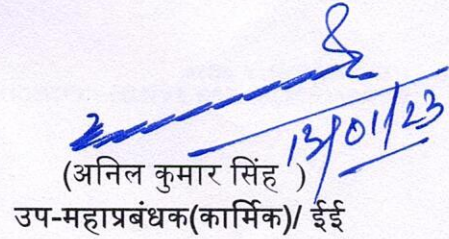 13/01/23
(अनिल कुमार सिंह )
उप-महाप्रबंधक(कार्मिक)/ ईई